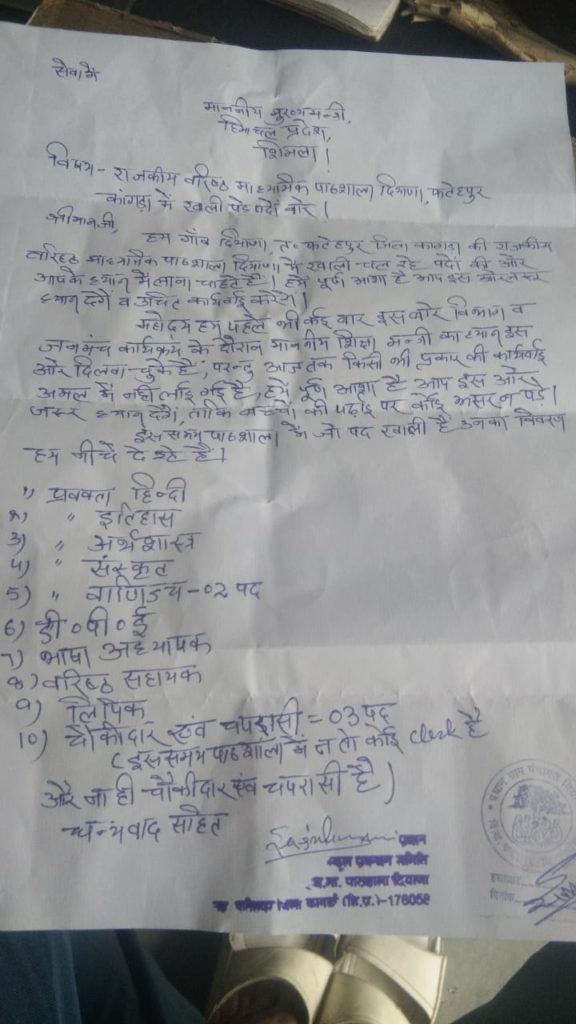 सेवा में
माननीय मुख्यमन्त्री,
हिमाचल प्रदेश,
शिमला।
विषय - राजकीय वरिष्ठ माध्यमिक पाठशाला दियाणा, फतेहपुर
कांगड़ा में खाली पड़े पदों बारे।
श्रीमानजी,
हम गाँव दियाणा, त० फतेहपुर जिला कांगड़ा की राजकीय
वरिष्ठ माध्यमिक पाठशाला दियाणा में खाली चल रहे पदों की ओर
आपके ध्यान में लाना चाहते है। हमें पूर्ण आशा है आप इस ओर जरूर
ध्यान देंगे व उचित कार्यवाई करेंगे।
महोदय हम पहले भी कई बार इस बारे विभाग व
जनमंच कार्यक्रम के दौरान माननीय शिक्षा मन्त्री का ध्यान इस
ओर दिलवा चुके है, परन्तु आज तक किसी भी प्रकार की कार्यवाई
अमल में नहीं लाई गई है, हमें पूर्ण आशा है आप इस ओर
जरूर ध्यान देंगे, ताकि बच्चों की पढ़ाई पर कोई असर न पड़े।
इस समय पाठशाला में जो पद खाली है उनका विवरण
हम नीचे दे रहे है।
1) प्रवक्ता हिन्दी
2) " इतिहास
3) " अर्थशास्त्र
4) " संस्कृत
5) " वाणिज्य - 02 पद
6) डी०पी०ई
7) भाषा अध्यापक
8) वरिष्ठ सहायक
9) लिपिक
10) चौकीदार एवं चपड़ासी = 03 पद
(इस समय पाठशाला में न तो कोई clerk है
और ना ही चौकीदार एवं चपरासी है)
धन्यवाद सहित
प्रधान
स्कूल प्रबन्धन समिति
व.मा. पाठशाला दियाणा
फतेहपुर जिला कांगड़ा (हि.प्र.)-176058
हस्ताक्षर
दिनांक